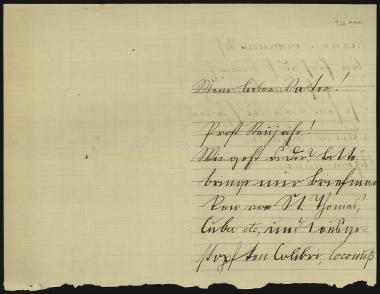 Mein lieber Vater!
Prost Neujahr!
Wie geht es dir? bitte
bringe mir Briefmar
ken von St. Thomas,
Cuba etc, und 1 ausge-
stopften Colibri, Cocosnuß